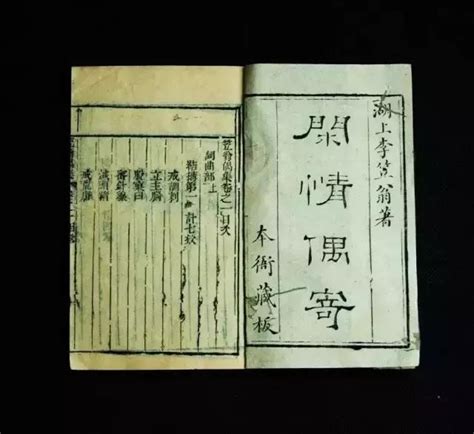 湖上李笠翁著
閑情偶寄
本衙藏板
笠翁偶集卷之一目次
詞曲部上
結構第一 計七款
戒諷刺
立主腦
脫窠臼
密針線
減頭緒
戒荒唐